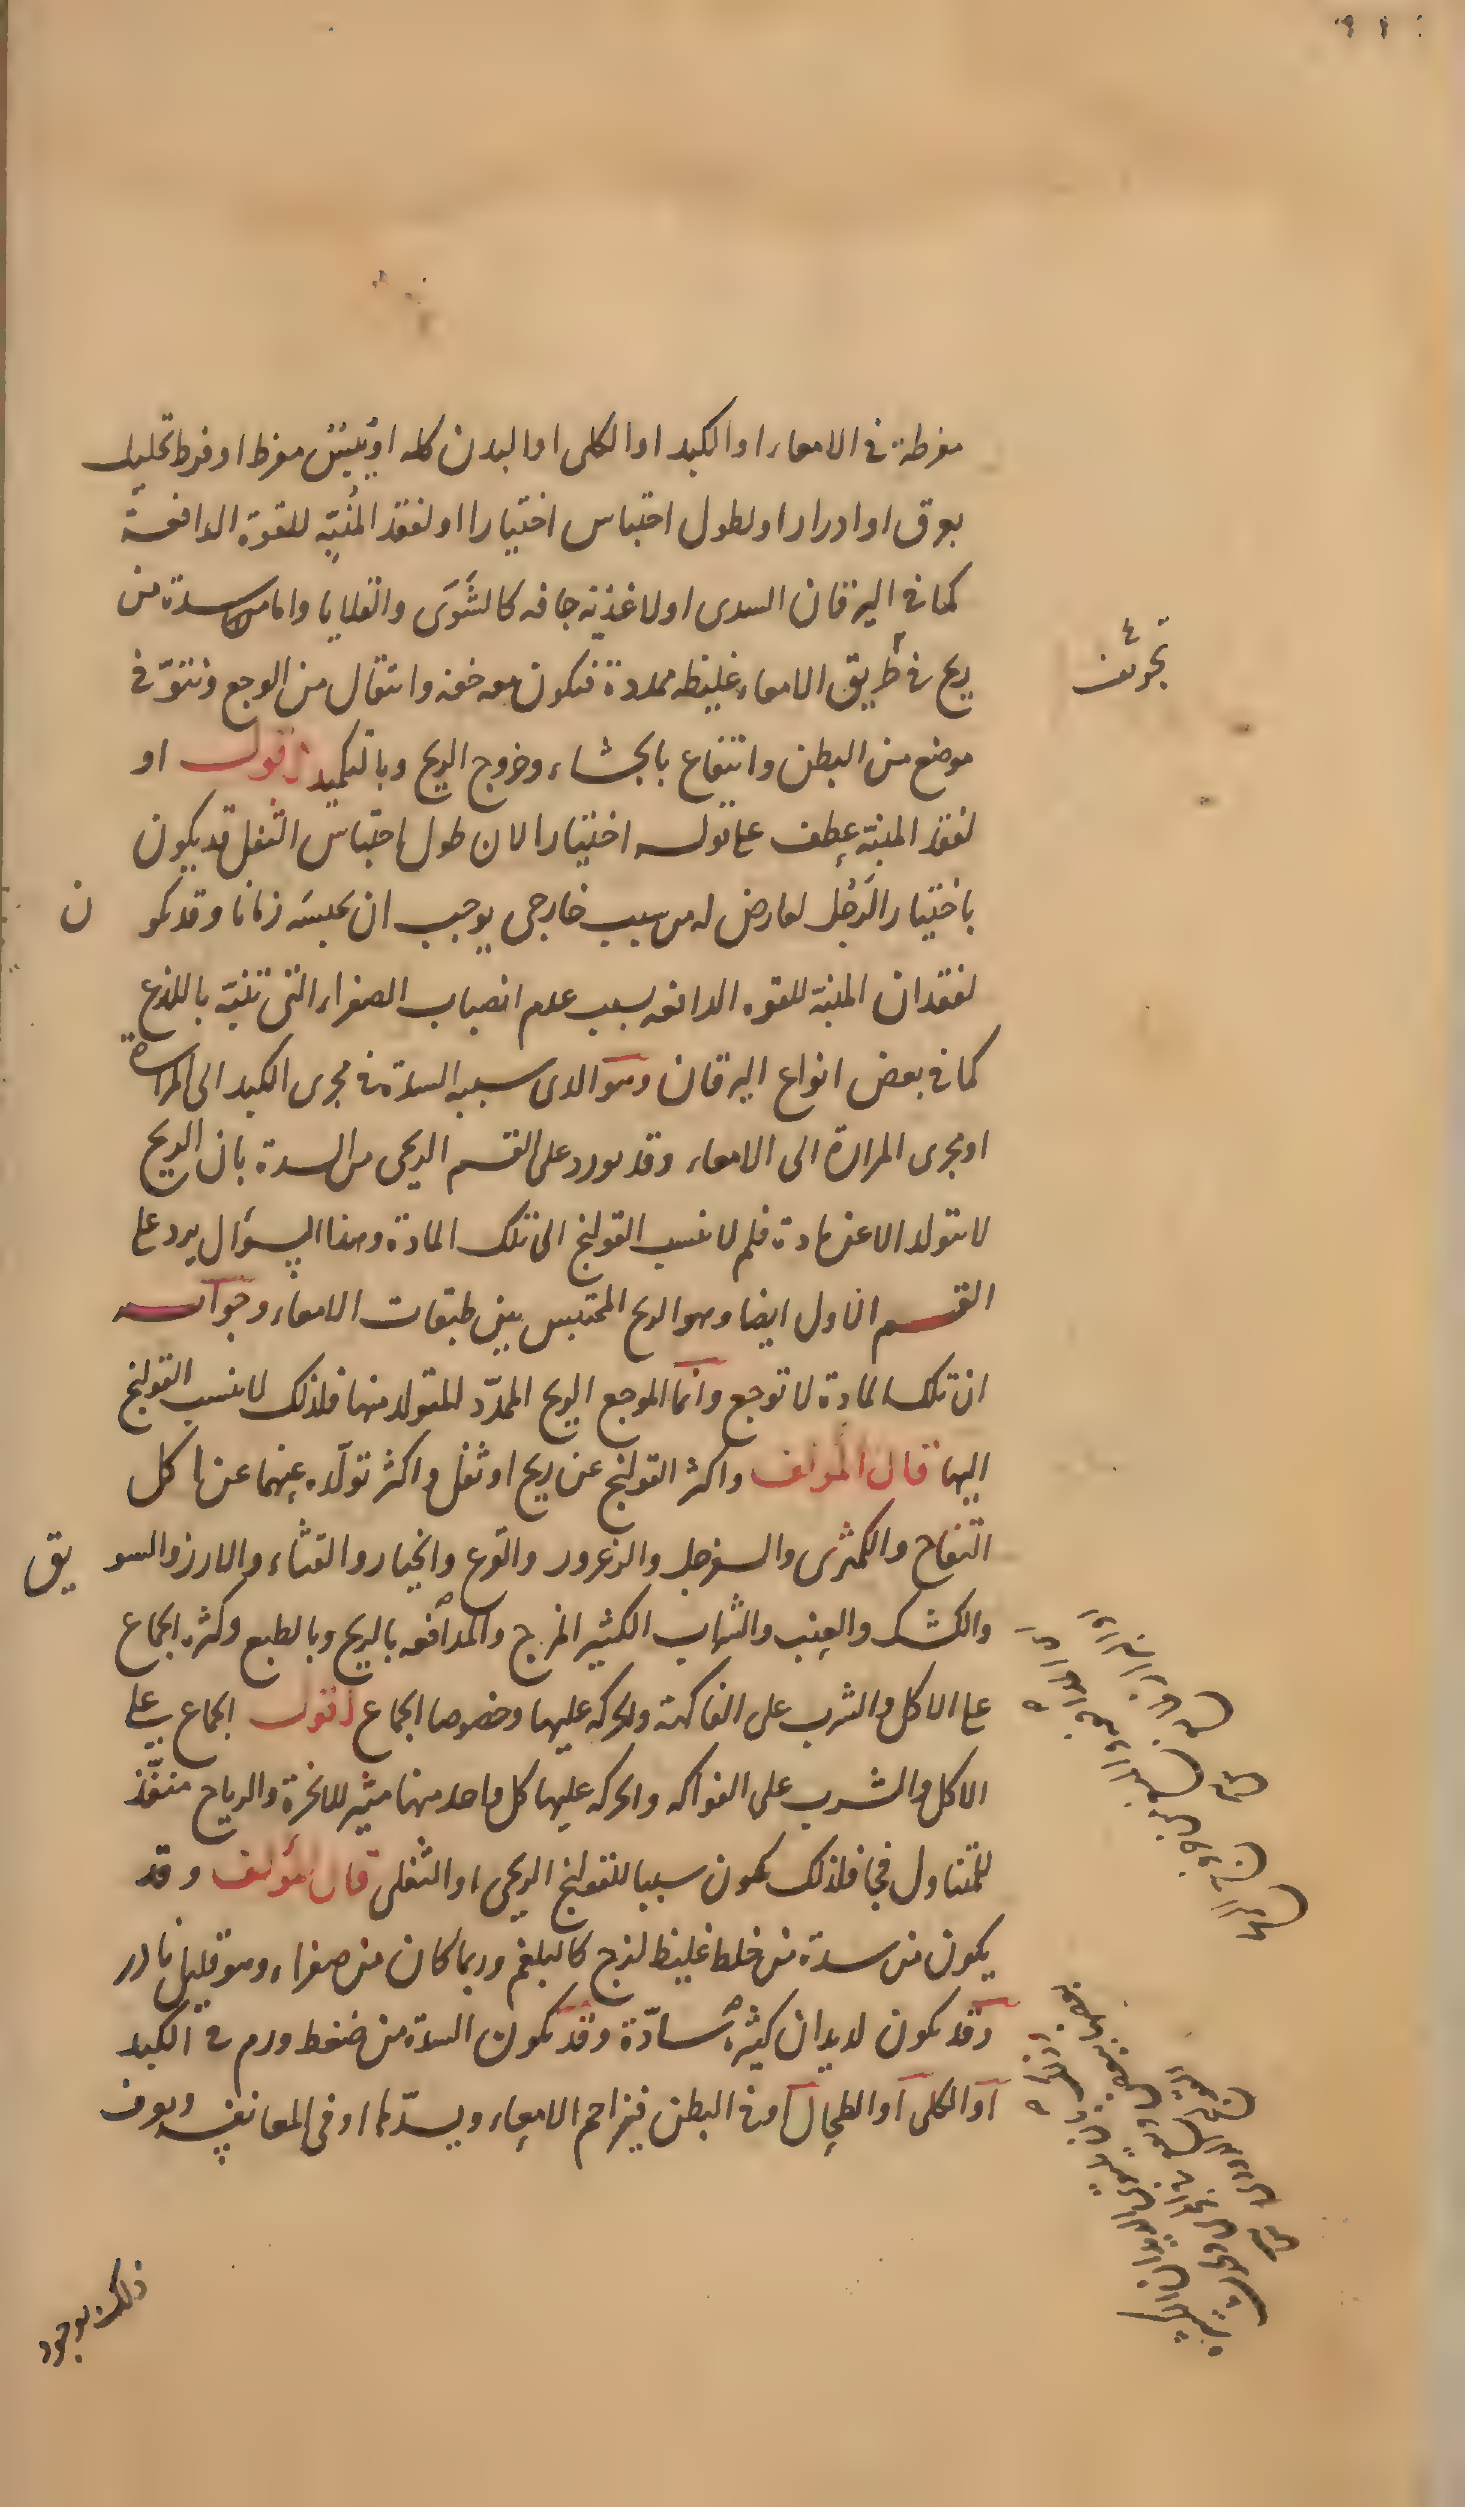 مفرطة في الامعاء او الكبد او الكلى او البدن كله او يُبْس مفرط او فرط تحليل
بعرق او ادرار او لطول احتباس اختيارا او لفقد المُنبّه للقوة الدافعة
كما في اليرقان السدى او لاغذية جافه كالشَوَى والقلايا واما من سدة من
ريح في طريق الامعاء غليظه ممددة فتكون معه خفه وانتقال من الوجع ونتوّ في
تجويف
موضع من البطن وانتفاع بالجشاء وخروج الريح وبالتكميد اقول او
لفقد المنبّه عطف على قوله اختيارا لان طول احتباس الثفل قد يكون
باختيار الرَجُل لعارض له من سبب خارجى يوجب ان يحبسَه زمانا وقد يكون
لفقدان المنبّه للقوه الدافعه بسبب عدم انصباب الصفراء التى تنبّه باللذع
كما في بعض انواع اليرقان وهو الذى سببه السدة في مجرى الكبد الى المرارة
او مجرى المرارة الى الامعاء وقد يورد على القسم الريحى من السدة بان الريح
لا تتولد الا عن مادة فلم لا ينسب القولنج الى تلك المادة وهذا السؤال يرد على
القسم الاول ايضا وهو الريح المحتبس بين طبقات الامعاء وجوابه
ان تلك المادة لا توجع وانما الموجع الريح الممدّد المتولد منها فلذلك لا ينسب القولنج
اليها قال المؤلف واكثر القولنج عن ريح او ثفل واكثر تولّده عنهما عن اكل
التفاح والكمثرى والسفرجل والزعرور والقرع والخيار والقثاء والارز والسويق
والكشك والعنب والشراب الكثير المزج والمدافعه بالريح وبالطبع وكثره الجماع
على الاكل والشرب على الفاكهة والحركه عليها وخصوصا الجماع اقول الجماع على
الاكل والشرب على الفواكه والحركه عليها كل واحد منها مثير للابخرة والرياح منفّذ
للمتناول فجا فلذلك يكون سببا للقولنج الريحى او الثفلى قال المؤلف وقد
يكون من سدة من خلط غليظ لزج كالبلغم وربما كان من صفراء وهو قليل نادر
وقد يكون لديدان كثيرة سادّة وقد تكون السدة من ضغط ورم في الكبد
او الكلى او الطحال او في البطن فيزاحم الامعاء ويسدّها او في المعا نفسه ويعرف
ذلك بوجود